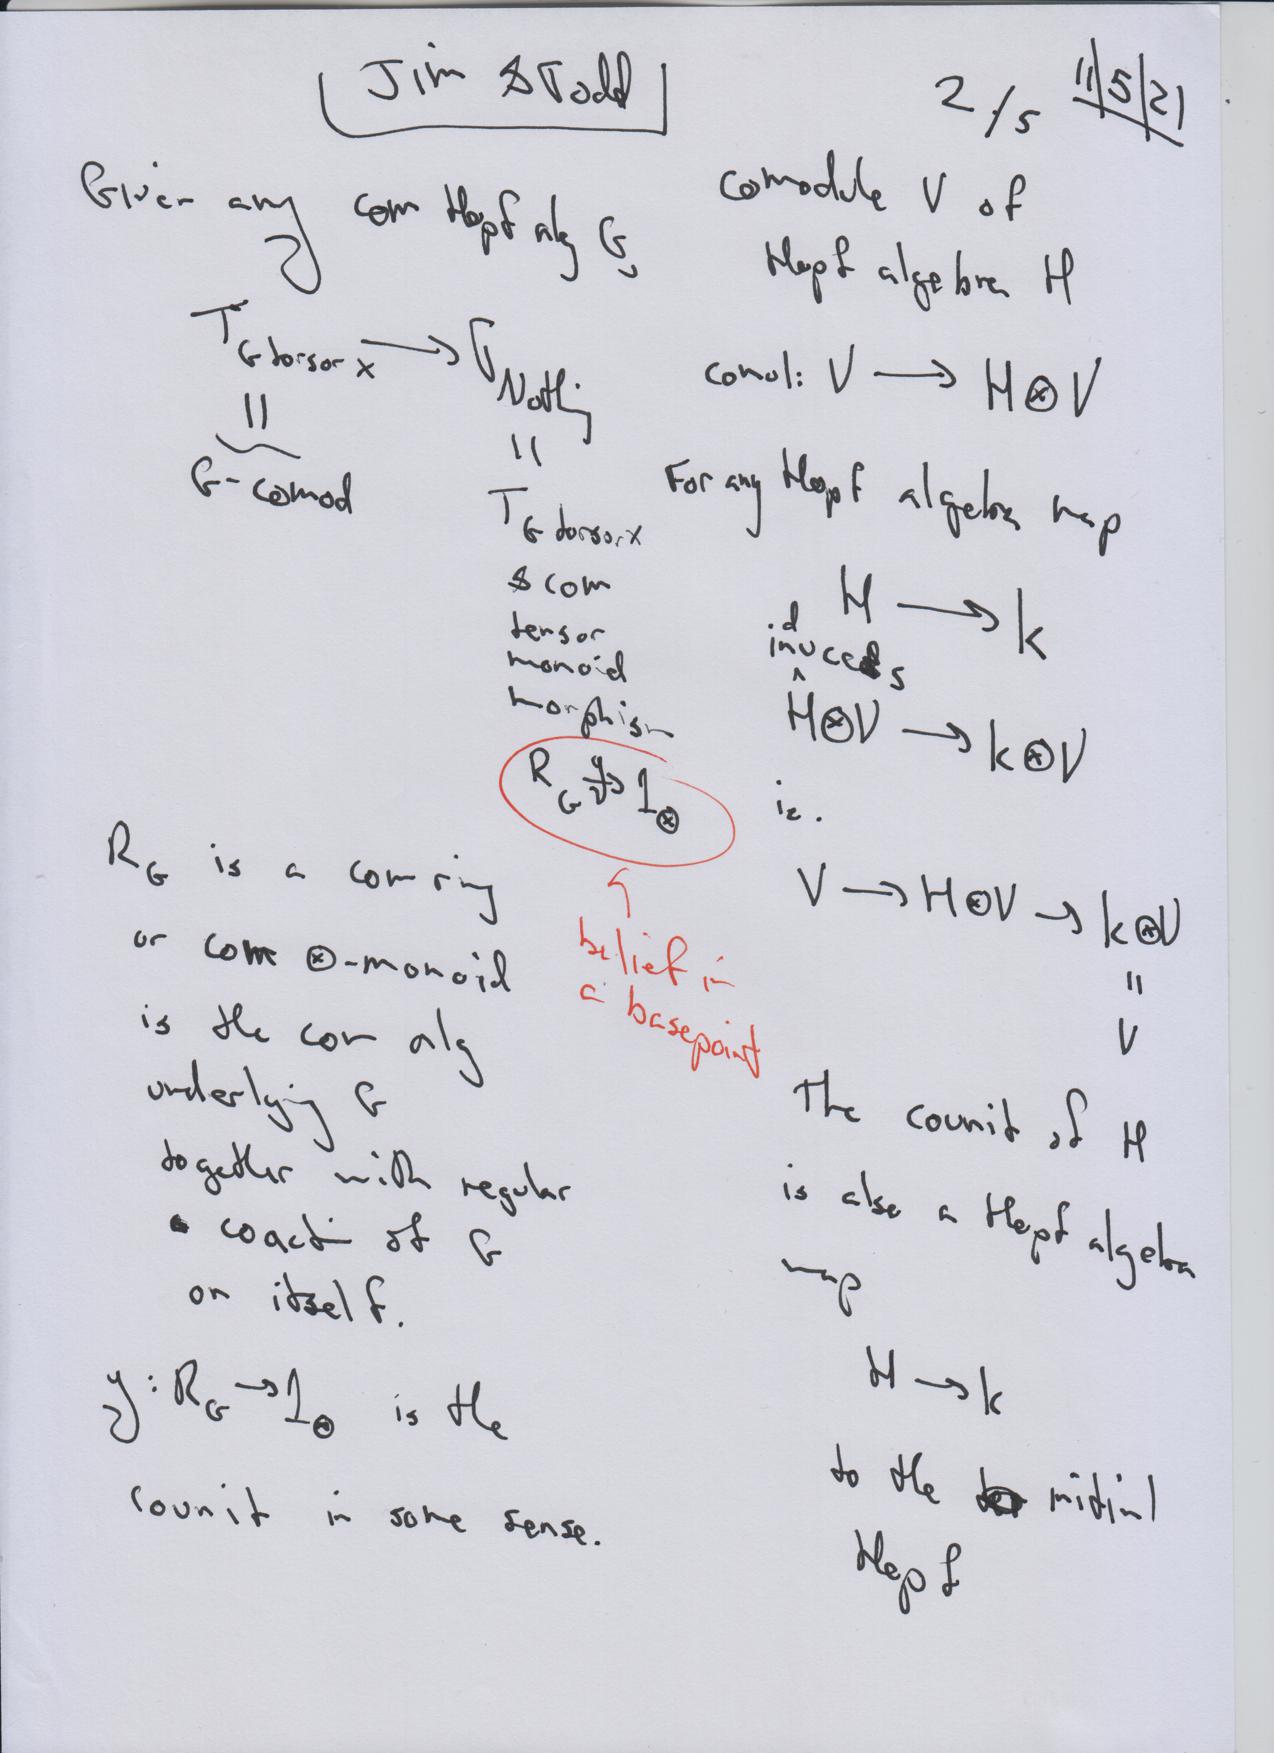 Jim & Todd
2/5 11/5/21
Given any com Hopf alg G,
T_{G torsor x} → T_{Nothing}
=
G-comod
=
T_{G torsor x}
& com
tensor
monoid
morphism
R_G →^y 1_⊗
belief in
a basepoint
R_G is a com ring
or com ⊗-monoid
is the com alg
underlying G
together with regular
coaction of G
on itself.
y: R_G → 1_⊗ is the
counit in some sense.
comodule V of
Hopf algebra H
comul: V → H⊗V
For any Hopf algebra map
H → k
induces
H⊗V → k⊗V
ie.
V → H⊗V → k⊗V
=
V
The counit of H
is also a Hopf algebra
map
H → k
to the initial
Hopf